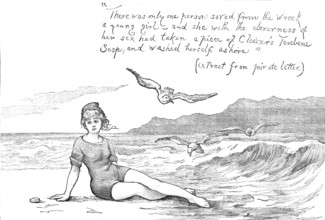 "There was only one person saved from the wreck
a young girl - and she with the cleverness of
her sex had taken a piece of Cleaver's Terebene
Soap, and washed herself ashore"
(extract from private letter)